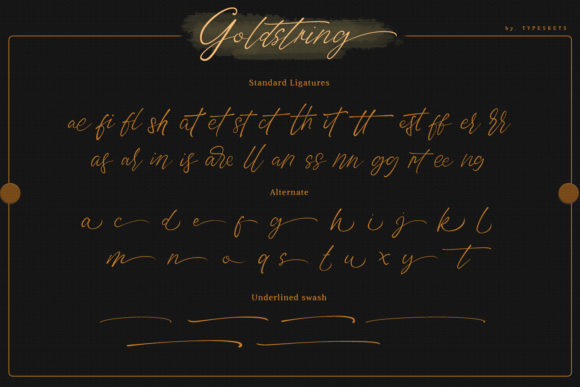 Goldstring
by. TYPESKETS
Standard Ligatures
ae fi fl sh at et st ct th it tt est ff er rr
as ar in is are ll an ss nn gg rt ee ng
Alternate
a c d e f g h i j k l
m n o q s t u x y t
Underlined swash